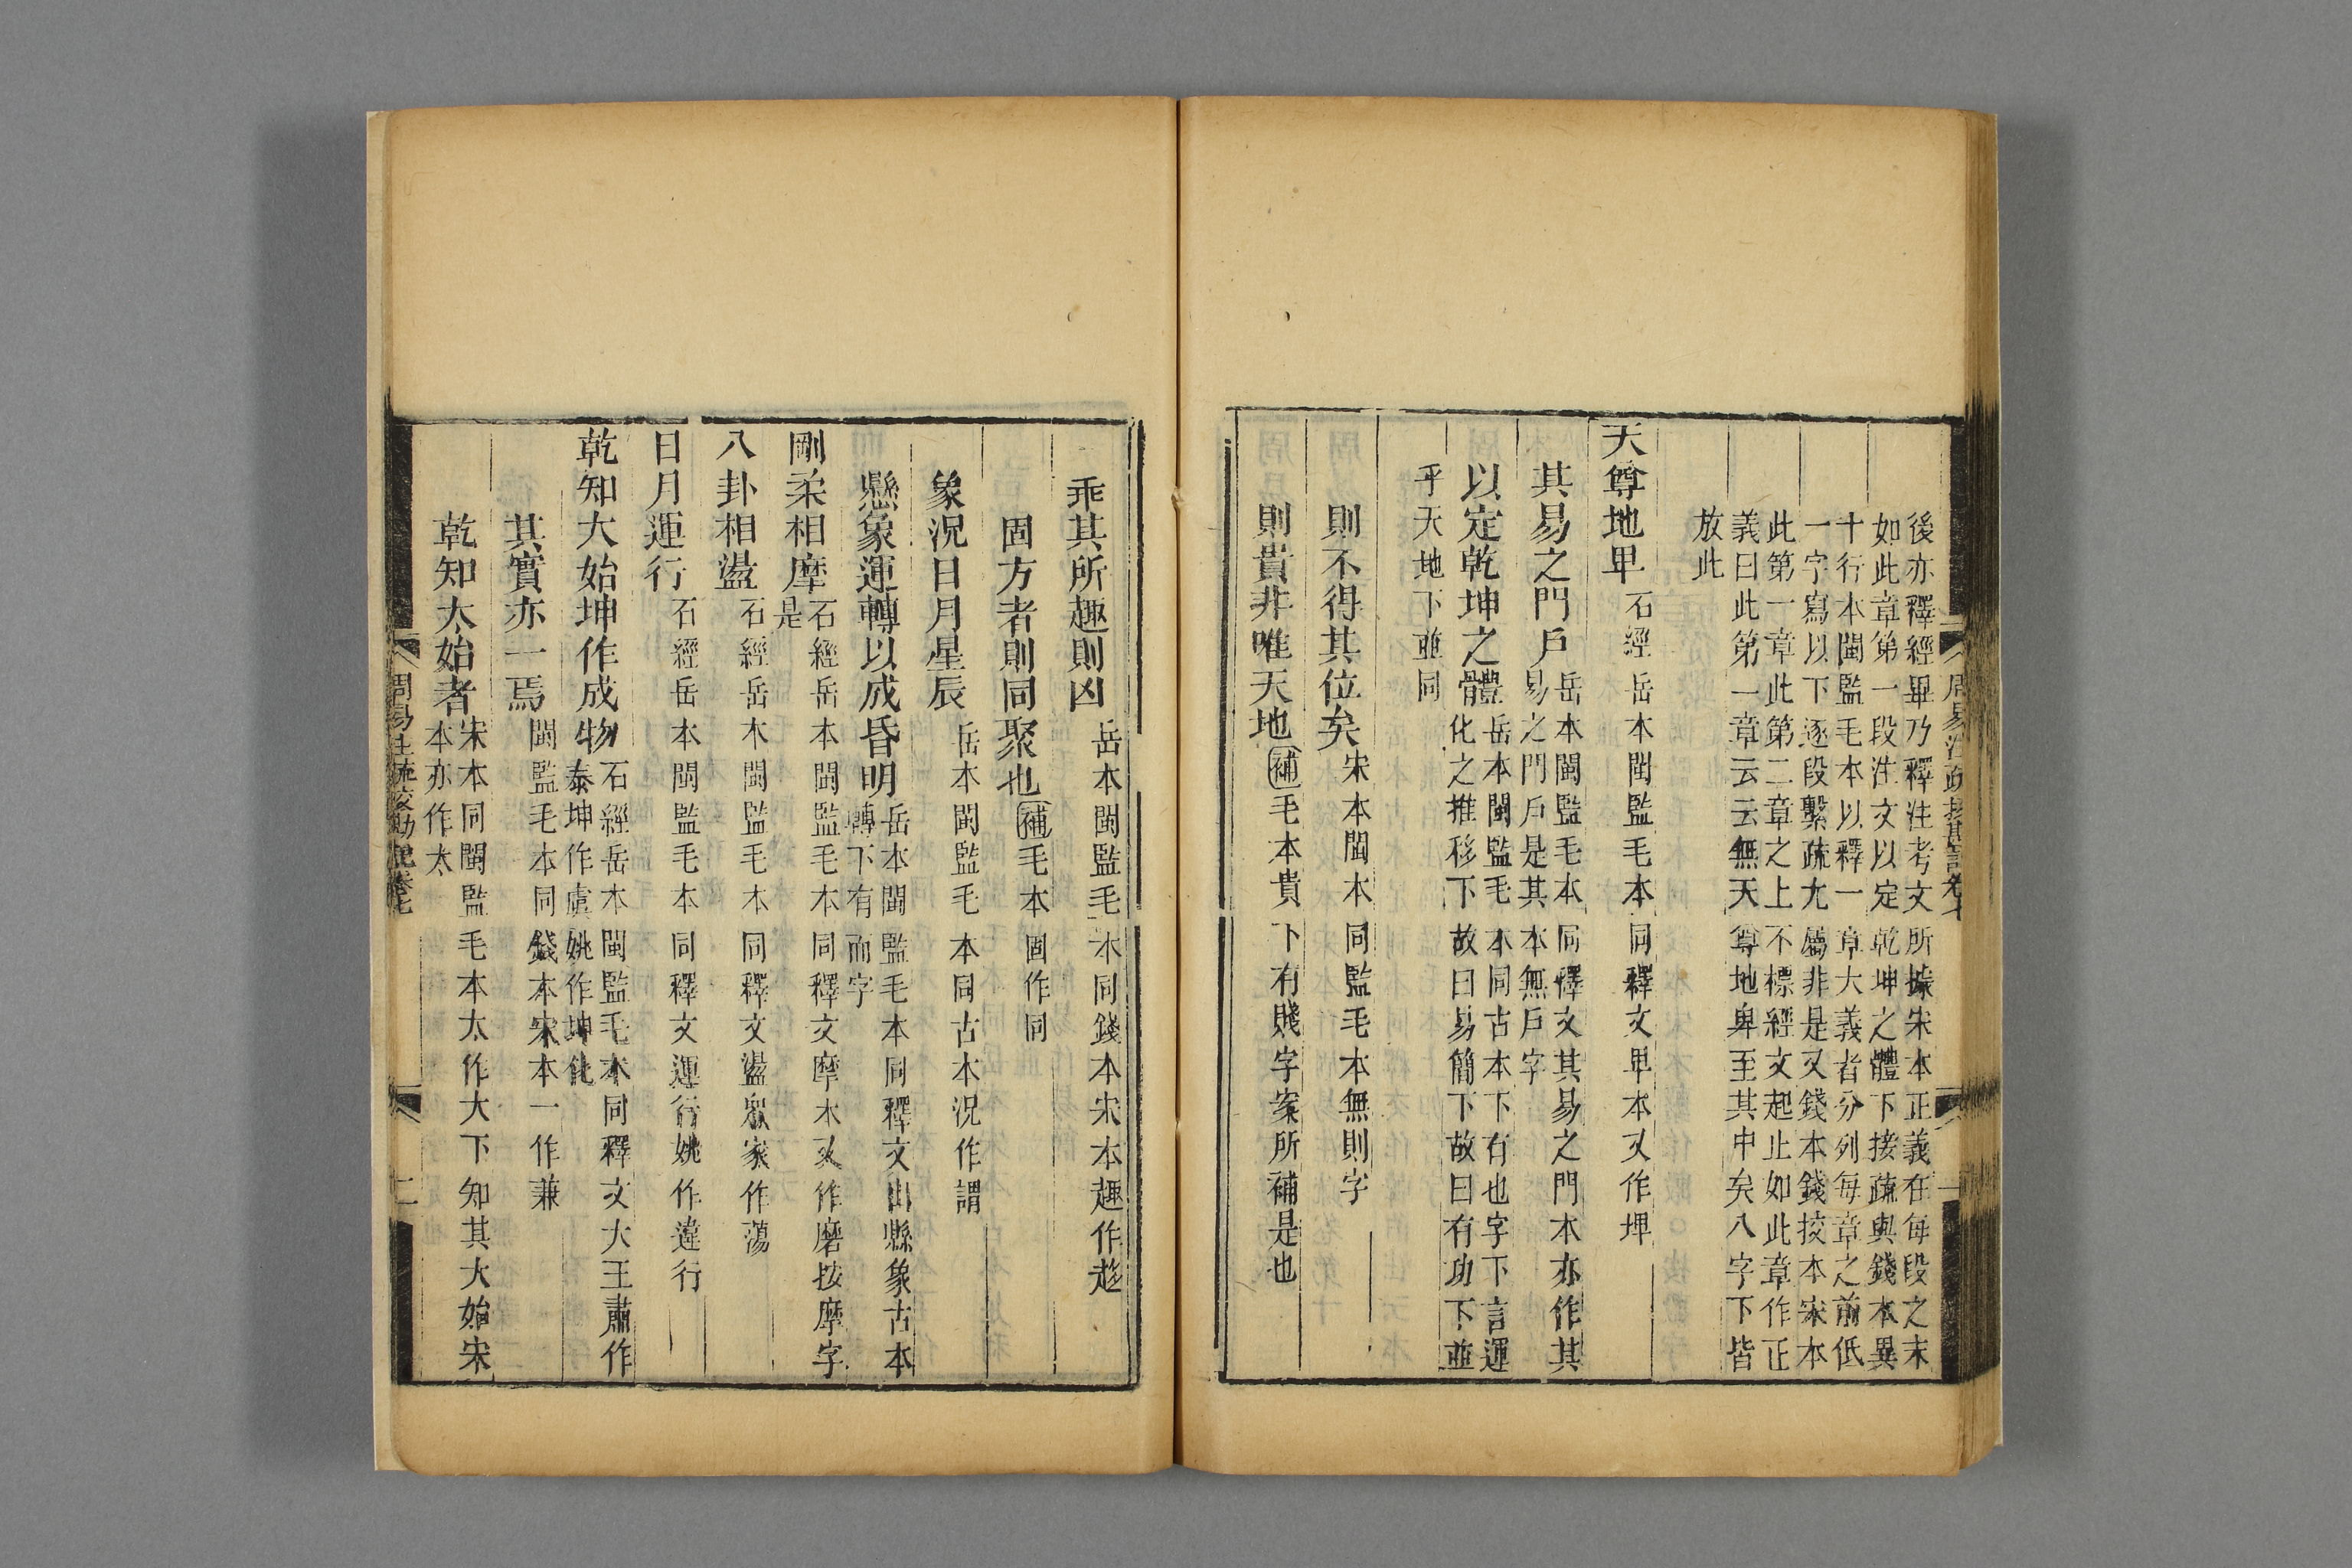 後亦釋經畢乃釋注考文所據宋本正義在每段之末
如此章第一段注文以定乾坤之體下接疏與錢本異
十行本閩監毛本以釋一章大義者分列每章之前低
一字寫以下逐段繫疏尤屬非是又錢本錢挍本宋本
此第一章此第二章之上不標經文起止如此章作正
義曰此第一章云云無天尊地卑至其中矣八字下皆
放此
天尊地卑石經岳本閩監毛本同釋文卑本又作埤
其易之門戶岳本閩監毛本同釋文其易之門本亦作其
易之門戶是其本無戶字
以定乾坤之體岳本閩監毛本同古本下有也字下言運
化之推移下故曰易簡下故曰有功下並
乎天地下並同
則不得其位矣宋本閩本同監毛本無則字
則貴非唯天地補毛本貴下有賤字案所補是也
乖其所趣則凶岳本閩監毛本同錢本宋本趣作趍
固方者則同聚也補毛本固作同
象況日月星辰岳本閩監毛本同古本況作謂
懸象運轉以成昏明岳本閩監毛本同釋文出縣象古本
轉下有而字
剛柔相摩石經岳本閩監毛本同釋文摩本又作磨按摩字
是
八卦相盪石經岳本閩監毛本同釋文盪眾家作蕩
日月運行石經岳本閩監毛本同釋文運行姚作違行
乾知大始坤作成物石經岳本閩監毛本同釋文大王肅作
泰坤作虞姚作坤化
其實亦一焉閩監毛本同錢本宋本一作兼
乾知太始者宋本同閩監毛本太作大下知其大始宋
本亦作太
周易注疏挍勘記卷七
二